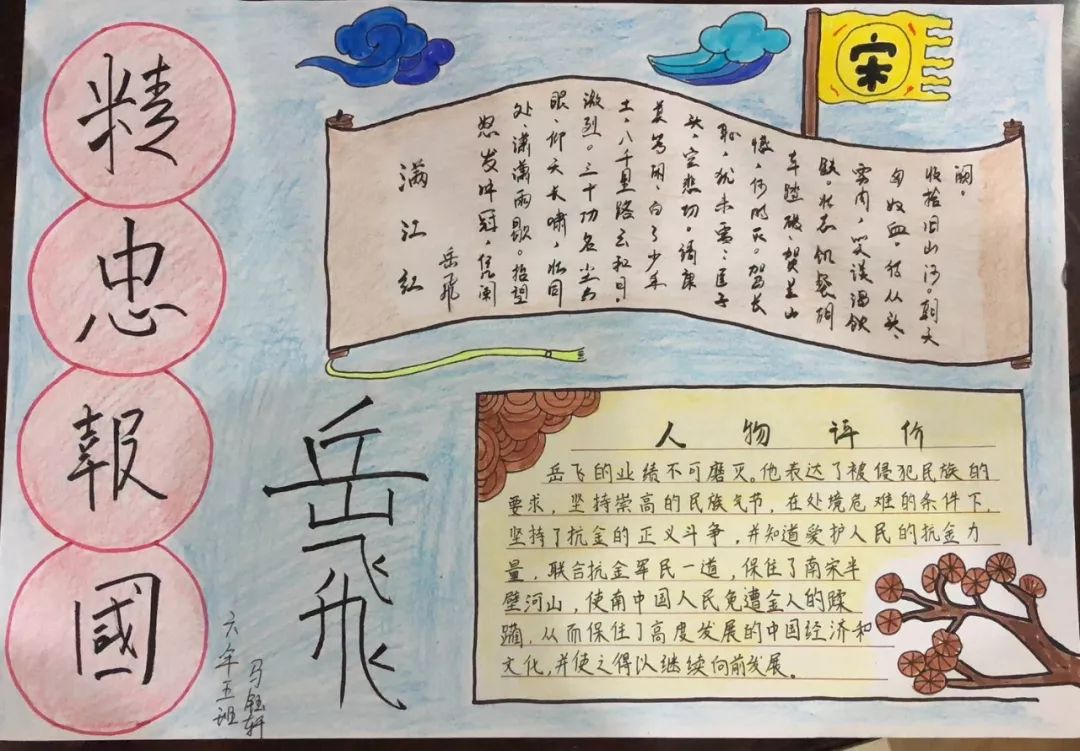 精忠報國
宋
满江红
岳飞
怒发冲冠，凭阑
处、潇潇雨歇。抬望
眼、仰天长啸，壮怀
激烈。三十功名尘与
土，八千里路云和月。
莫等闲、白了少年
头，空悲切。靖康
耻，犹未雪；臣子
恨，何时灭。驾长
车踏破、贺兰山
缺。壮志饥餐胡
虏肉，笑谈渴饮
匈奴血。待从头、
收拾旧山河。朝天
阙。
岳飛
人物评价
岳飞的业绩不可磨灭。他表达了被侵犯民族的
要求，坚持崇高的民族气节，在处境危难的条件下，
坚持了抗金的正义斗争，并知道爱护人民的抗金力
量，联合抗金军民一道，保住了南宋半
壁河山，使南中国人民免遭金人的蹂
躏，从而保住了高度发展的中国经济和
文化，并使之得以继续向前发展。
六年五班
马钰轩